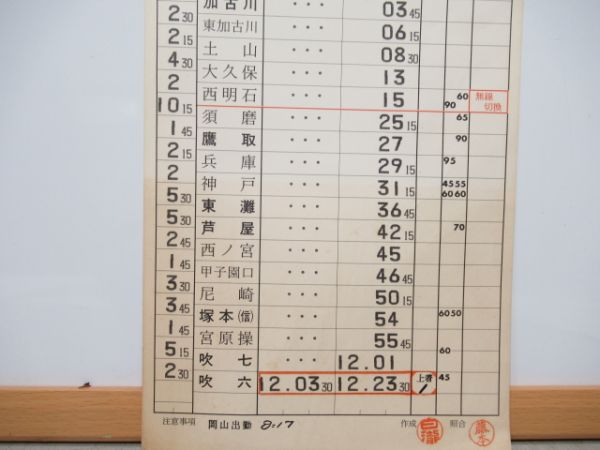 加古川 ... 03 45
2 30
東加古川 ... 06 15
2 15
土山 ... 08 30
4 30
大久保 ... 13
2
西明石 ... 15 60 90 無線切換
10 15
須磨 ... 25 15 65
1 45
鷹取 ... 27 90
2 15
兵庫 ... 29 15 95
2
神戸 ... 31 15 45 55 60 60
5 30
東灘 ... 36 45
5 30
芦屋 ... 42 15 70
2 45
西ノ宮 ... 45
1 45
甲子園口 ... 46 45
3 30
尼崎 ... 50 15
3 45
塚本(信) ... 54 60 50
1 45
宮原操 ... 55 45
5 15
吹七 ... 12.01 60
2 30
吹六 12.03 30 12.23 30 上着 1 45
注意事項 岡山出勤 8:17 作成 白瀧 照合 藤本